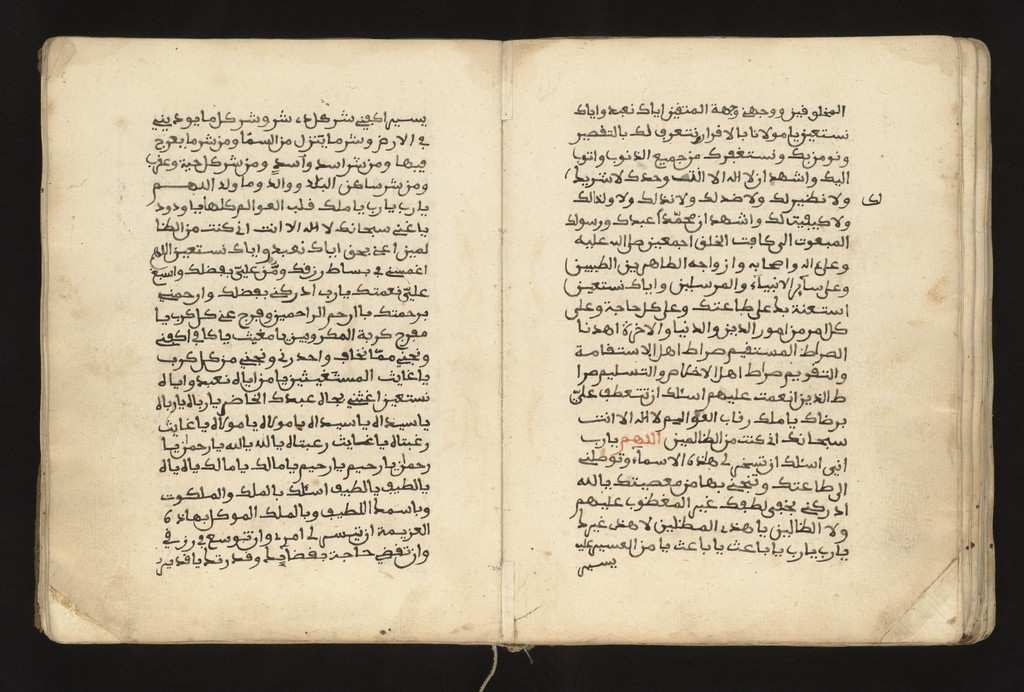 المخلوفين ووجهني وجهة المتقين اياك نعبد واياك
نستعين يا مولانا بالافرار نتعرف لك بالتفصير
ونومن بك ونستغفرك من جميع الذنوب واتوب
اليك واشهد ان لا اله الا الله وحدك لا شريك
لك ولا نظير لك ولا ضد لك ولا ند لك ولا ولد لك
لك واشهد ان محمدا عبدك ورسولك
المبعوث الى كافت الخلق اجمعين صلى الله عليه
وعلى اله واصحابه وازواجه الطاهرين الطيبين
وعلى ساير الانبياء والمرسلين واياك نستعين
استعنة بك على طاعتك وعلى كل حاجة وعلى
كل امر من امور الدين والدنيا والاخرة اهدنا
الصراط المستقيم صراط اهل الاستقامة
والتقويم صراط اهل الاخلاص والتسليم صرا
ط الذين انعمت عليهم اسئلك ان تتعطف علي
برضاك يا ملك رقاب العوالم لا اله الا انت
سبحانك اني كنت من الظالمين اللهم يا رب
اني اسئلك ان تسخر لي هذه الاسماء وتوصلني
الى طاعتك وتنجني بها من معصيتك يا الله
ادركني بخفي لطفك غير المغضوب عليهم
ولا الظالين يا هدي المظلين لا هدي غيرك
يا رب يا رب يا باعث يا باعث يا من العسير عليه
يسير
يسير اكفني شر كل ذي شر وشر كل ما يوذيني
في الارض وشر ما ينزل من السما ومن شر ما يعرج
فيها ومن شر اسد واسد ومن شر كل حية وعقرب
ومن شر ساكن البلد ووالد وما ولد اللهم
يا رب يا رب يا ملك العوالم كلها يا ودود
يا غني سبحانك لا اله الا انت اني كنت من الظا
لمين اعني بحق اياك نعبد واياك نستعين اللهم
اغمسني في بساط رزقك ومن علي بفضلك واسبغ
علي نعمتك يا رب ادركني بفضلك وارحمني
برحمتك يا ارحم الراحمين وفرج عني كل كرب يا
مفرج كربة المكروبين يا مغيث يا كافي اكفني
ونجني مما نخاف واحذر ونجني من كل كرب
يا غايث المستغيثين يا من اياك نعبد واياك
نستعين اغثني بحال عبدك الخاضع يا رباه يا رباه
يا سيداه يا سيداه يا مولاه يا مولاه يا غايث
رغبتاه يا غايث رغبتاه يا الله يا الله يا رحمن يا
رحمن يا رحيم يا رحيم يا مالك يا مالك يا اله يا اله
يا لطيف يا لطيف اسئلك بالملك والملكوت
وباسمك اللطيف وبالملك الموكل بهاذه
العزيمة ان تيسر لي امري وان توسع في رزقي
وان تقضي حاجة بفضلك وقدرتك يا قدير